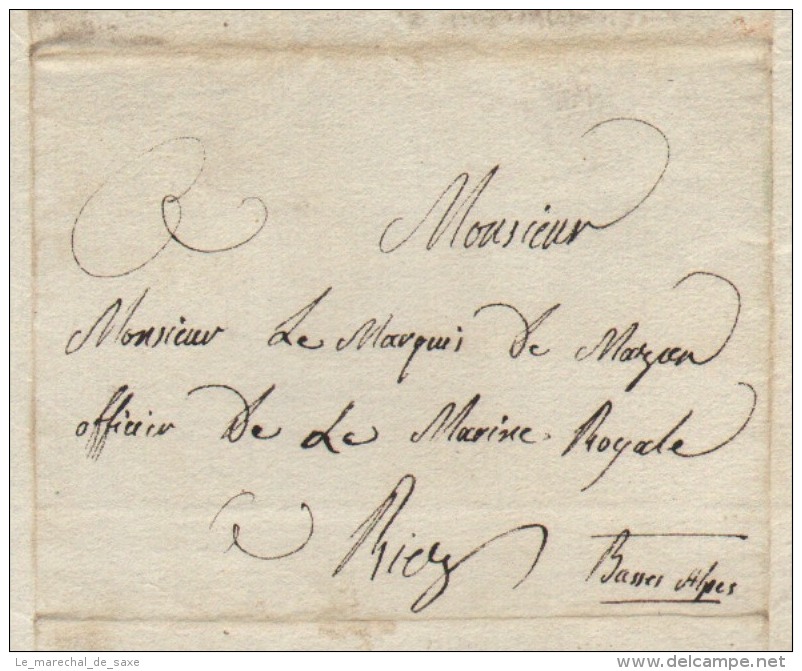 A Monsieur
Monsieur Le Marquis De Mazan
officier De La Marine Royale
a Riez Basses Alpes
Le_marechal_de_saxe
delcampe.net